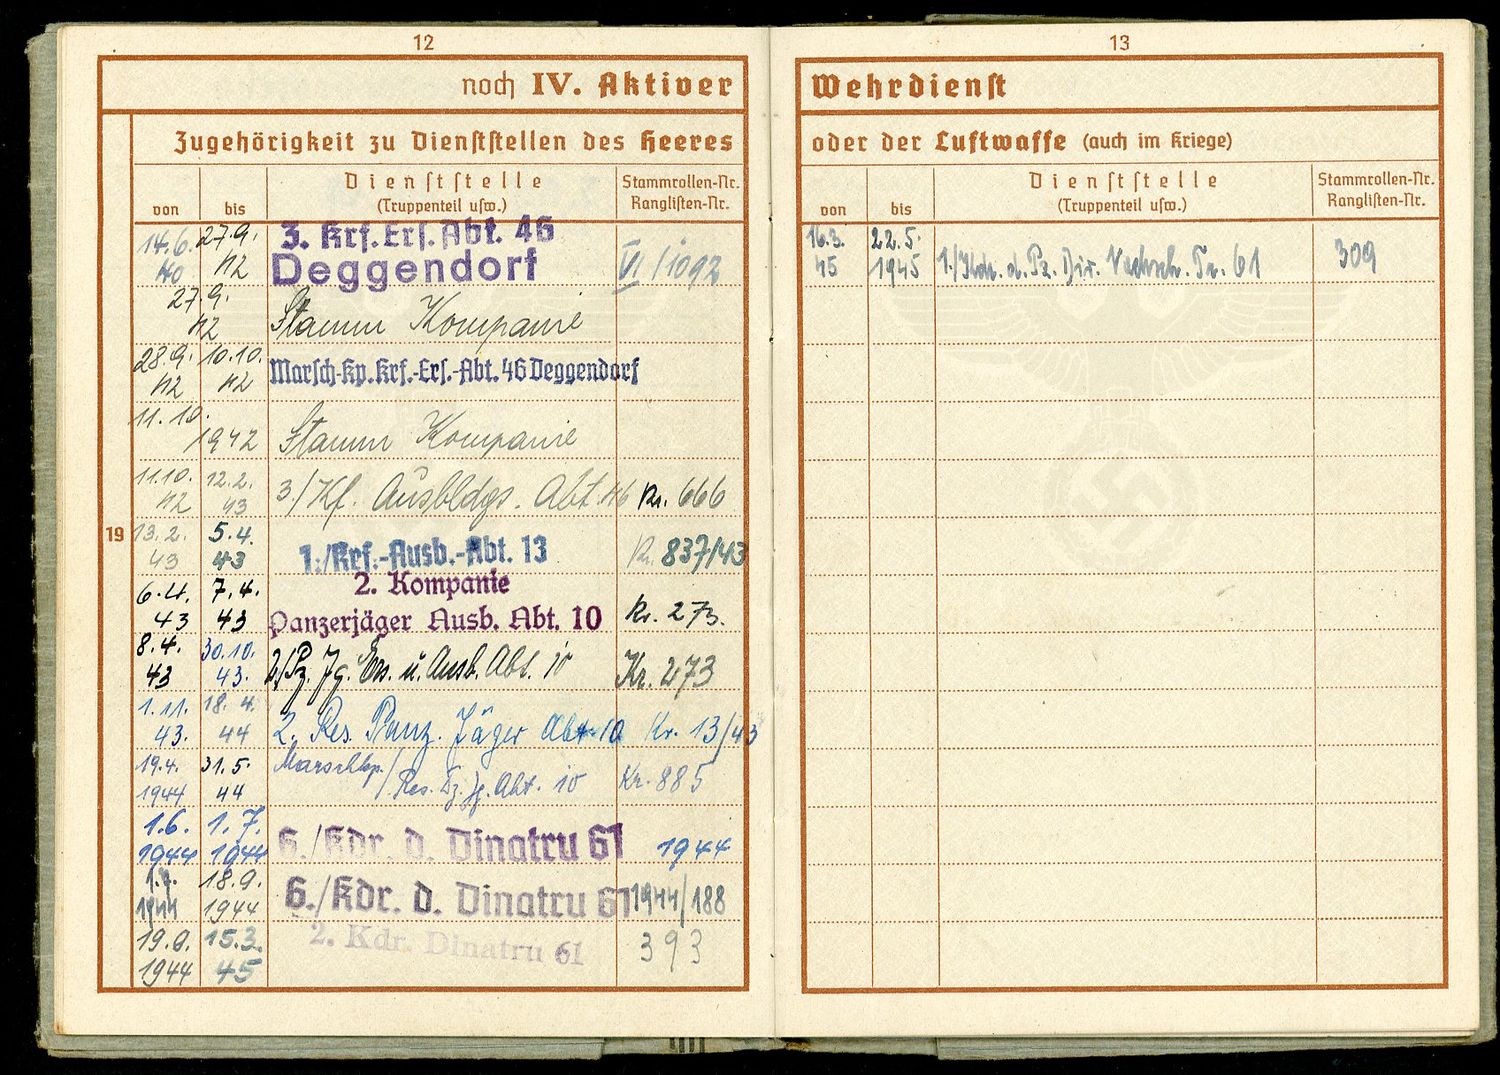 12
noch IV. Aktiver
Zugehörigkeit zu Dienststellen des Heeres
von
bis
Dienststelle
(Truppenteil usw.)
Stammrollen-Nr.
Ranglisten-Nr.
14.6. 27.9. 3. Krf. Ers. Abt. 46
40 42 Deggendorf VI/1092
27.9.
42 Stamm Kompanie
28.9. 10.10. Marsch-Kp. Krf.-Ers.-Abt. 46 Deggendorf
42 42
11.10.
1942 Stamm Kompanie
11.10. 12.2. 3./Kf. Ausbldgs. Abt. 46 Kr. 666
42 43
19
13.2. 5.4. 1./Krf.-Ausb.-Abt. 13 Kr. 837/43
43 43
6.4. 7.4. 2. Kompanie
43 43 Panzerjäger Ausb. Abt. 10 Kr. 273.
8.4. 30.10. 2/Pz. Jg. Ers. u. Ausb. Abt. 10 Kr. 273
43 43.
1.11. 18.4. 2. Res. Panz. Jäger Abt. 10 Kr. 13/43
43. 44
19.4. 31.5. Marschkp./
1944 44 Res. Pz. Jg. Abt. 10 Kr. 885
1.6. 1.7. 6./Kdr. d. Dinatru 61 1944
1944 1944
18.9. 6./Kdr. d. Dinatru 61 1944/188
1944 1944
19.9. 15.3. 2. Kdr. Dinatru 61 393
1944 45
13
Wehrdienst
oder der Luftwaffe (auch im Kriege)
von
bis
Dienststelle
(Truppenteil usw.)
Stammrollen-Nr.
Ranglisten-Nr.
16.3. 22.5. 309
45 1945 1./Kdr. d. Pz. Div. Nachsch. Tr. 61